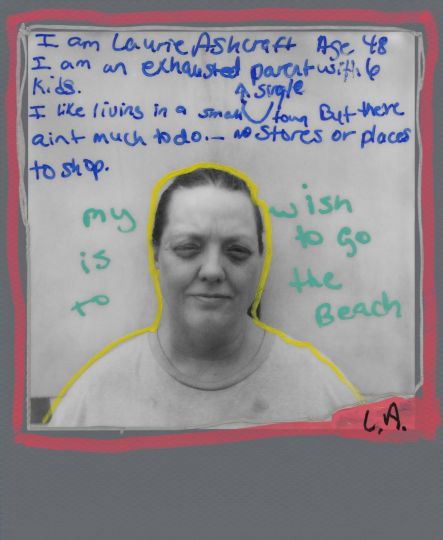 I am Laurie Ashcraft Age 48
I am an exhausted parent with 6
kids. ↑ single
I like living in a small town But there
aint much to do. — no stores or places
to shop.
my wish
is to go
to the
Beach
L.A.